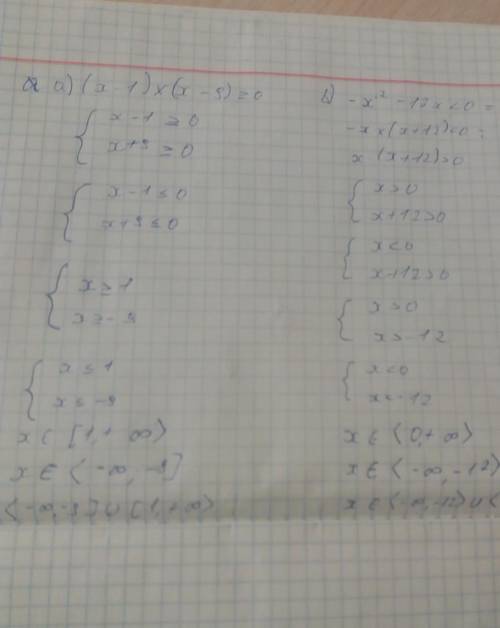 a) (x-1)×(x-9)≥0
{ x-1≥0
x+9≥0
{ x-1≤0
x+9≤0
{ x≥1
x≥-9
{ x≤1
x≤-9
x∈[1,+∞)
x∈⟨-∞,-9]
⟨-∞,-9]∪[1,+∞⟩
b) -x²-12x<0=
-x×(x+12)<0
x(x+12)>0
{ x>0
x+12>0
{ x<0
x+12>0
{ x>0
x>-12
{ x<0
x<-12
x∈⟨0,+∞⟩
x∈⟨-∞,-12⟩
x∈⟨-∞,-12⟩∪⟨